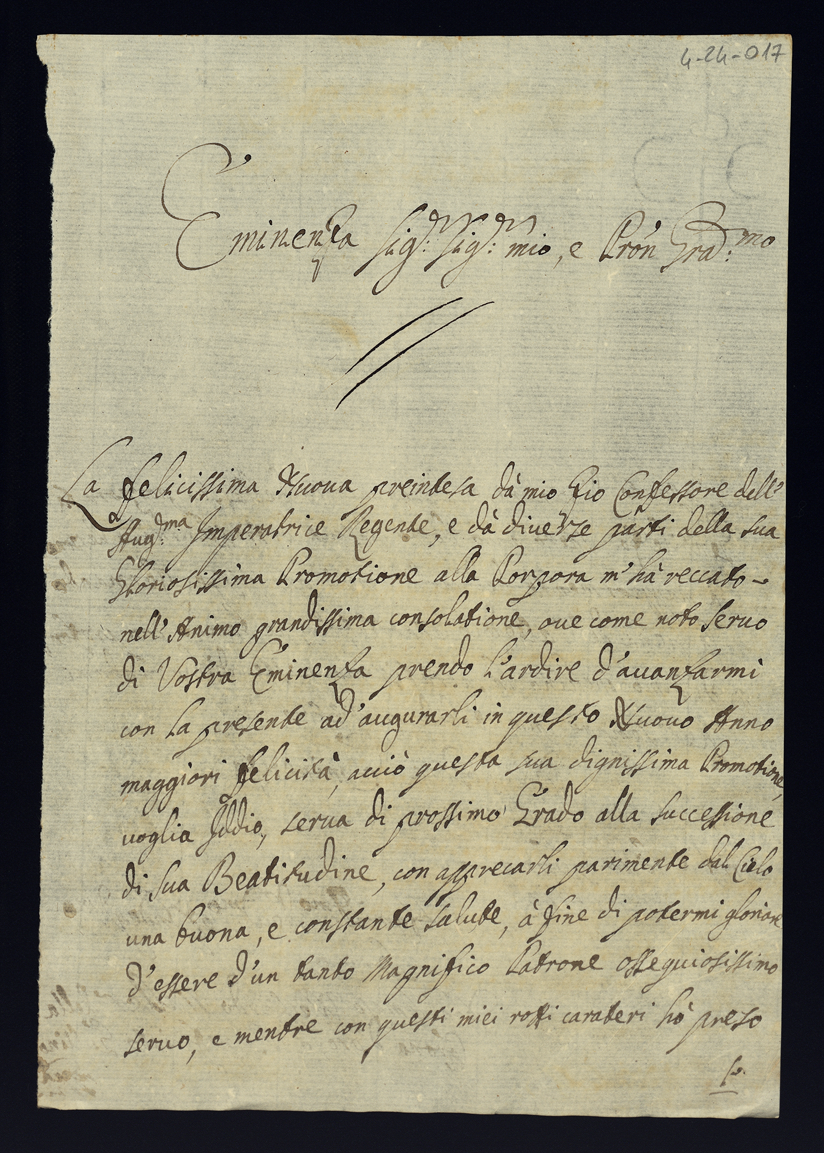 4-24-017
Eminenza Sig:r Sig:r mio, e Pron Grad:mo
La felicissima Nuova preintesa dà mio Zio Confessore dell'
Aug:ma Imperatrice Regente, e dà diverse parti della sua
Gloriosissima Promotione alla Porpora m'hà reccato
nell'Animo grandissima consolatione, ove come noto servo
di Vostra Eminenza prendo l'ardire d'avanzarmi
con la presente ad'augurarli in questo Nuovo Anno
maggiori felicità, acciò questa sua dignissima Promotione,
voglia Iddio, serva di prossimo Grado alla successione
di sua Beatitudine, con apprecarli parimente dal Cielo
una buona, e constante salute, à fine di potermi gloriare
d'essere d'un tanto Magnifico Patrone ossequiosissimo
servo, e mentre con questi miei rozzi carateri hò preso